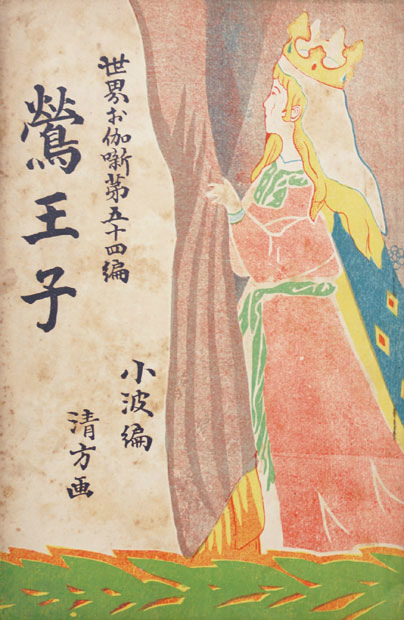 世界お伽噺第五十四編
鶯王子
小波編
清方画